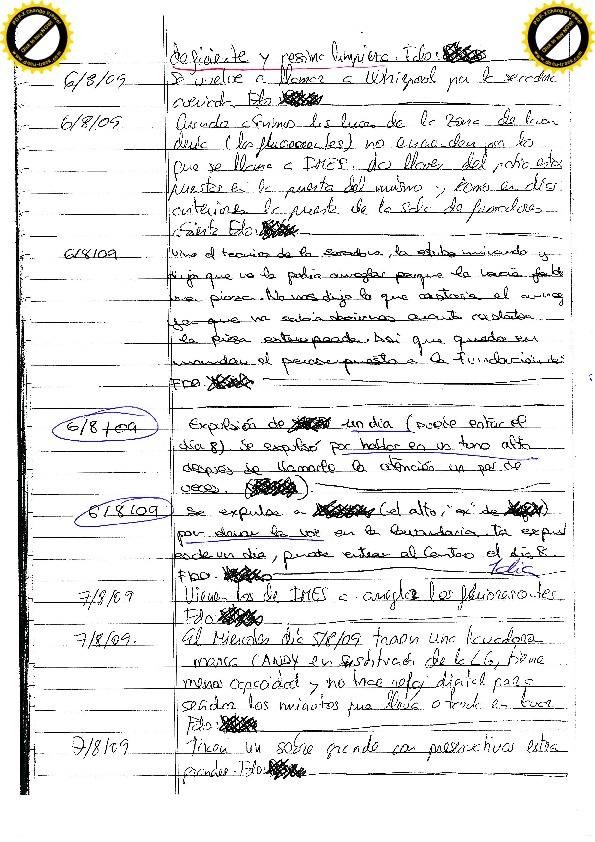 deficiente y pesima limpieza. Fdo:
6/8/09 Se vuelve a llamar a Whirpool por la secadora
averiada. Fdo:
6/8/09 Cuando abrimos las luces de la zona de lavan
deria (los fluorescentes) no encienden por lo
que se llama a IMES. Las llaves del patio estan
puestas en la puerta del mismo y, como en dias
anteriores la puerta de la sala de fumadores
Fdo:
6/8/09 Vino el tecnico de la secadora, la estubo mirando y
dijo que no la podia arreglar porque la hacia falta
una pieza. No nos dijo lo que costaria el arreg
ya que no sabia cuanto costaba
la pieza estropeada. Asi que quedo en
mandar el presupuesto a la Fundación
FDO.
6/8/09 Expulsión de un dia (puede entrar el
día 8). Se expulsó por hablar en un tono alto
después de llamarle la atención un par de
veces.
6/8/09 Se expulsa a (el alto, "ex" de
por elevar la voz en la lavanderia. La expul
es de un dia, puede entrar al Centro el dia 8.
1 dia
FDO.
7/8/09 Vienen los de IMES a arreglar los fluorescentes
Fdo:
7/8/09. El Miercoles dia 5/8/09 traen una lavadora
marca CANDY en sustitución de la LG, tiene
menos capacidad y no trae reloj digital para
los minutos que lleva o tarda en lavar
Fdo:
7/8/09 Traen un sobre grande con preservativos extra
grandes. Fdo: